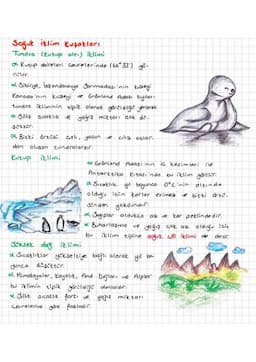 Soğuk İklim Kuşakları
Tundra (Kutup altı) İklimi
Kutup daireleri çevrelerinde (66° 33') gö-
rülür.
Sibirya, İskandinavya Yarımadası'nın kuzeyi
Kanada'nın kuzeyi ve Grönland Adası kıyıları
tundra ikliminin tipik olarak görüldüğü yerlerdir
Yıllık sıcaklık ve yağış miktarı çok dü-
şüktür.
Bitki örtüsü çalı, yosun ve cılız otlar-
dan oluşan tundralardır.
Kutup İklimi
Grönland Adası'nın iç kesimleri ile
Antarktika Kıtası'nda bu iklim görülür.
Sıcaklık yıl boyunca 0°C'nin altında
olduğu için karlar erimez ve bitki örtü-
sünden yoksundur.
Yağışlar oldukça az ve kar şeklindedir.
Buharlaşma ve yağış çok az olduğu için
bu iklim tipine soğuk çöl iklimi de denir.
Yüksek dağ iklimi
Sıcaklıklar yükseltiye bağlı olarak yıl bo-
yunca düşüktür.
Himalayalar, Kayalık, And Dağları ve Alpler
bu iklimin tipik görüldüğü alanlardır.
Yıllık sıcaklık farkı ve yağış miktarı
çevrelerine göre fazladır.